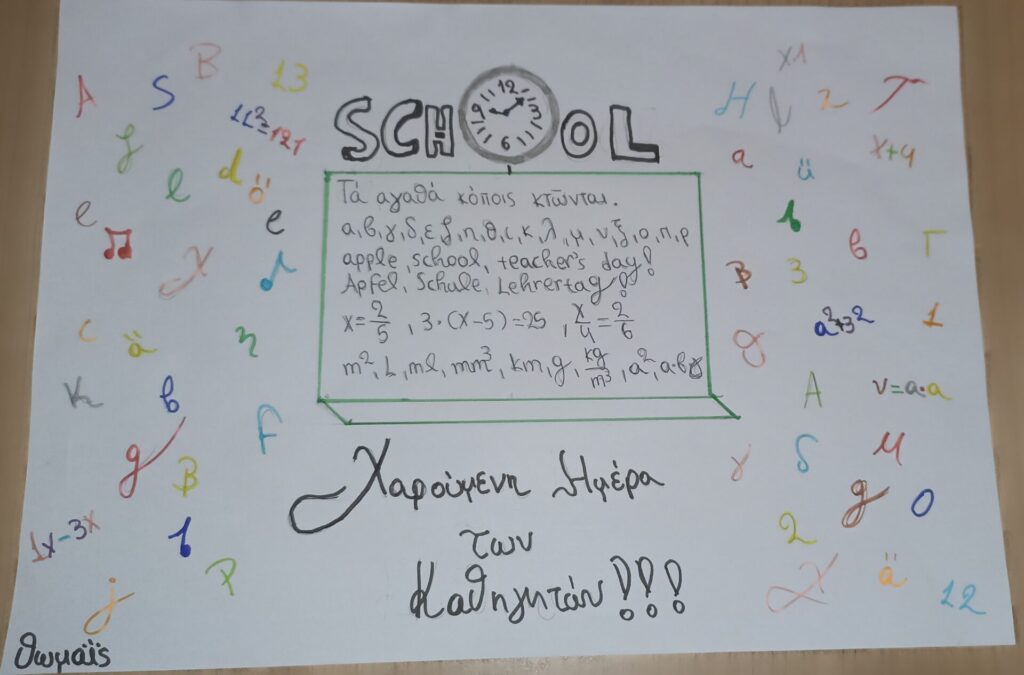 SCHOOL
12
3
6
9
Τά αγαθά κόποις κτῶνται.
α,β,γ,δ,ε,ζ,η,θ,ι,κ,λ,μ,ν,ξ,ο,π,ρ
apple, school, teacher's day!
Apfel, Schule, Lehrertag!
x=2/5, 3·(x-5)=25, x/4=2/6
m², L, ml, mm³, km, g, kg/m³, a², a·β
Χαρούμενη Ημέρα
των
Καθηγητών!!!
A S B 13
11²=121
d ö
l
e e
X
c ä
K b
F
g B
1x-3x
P
j
x·1
H 2 T
a ü x+4
b
B 3 β Γ
a²+3² 1
A v=a·a
γ δ M
g 0
2
X ä 12
Θωμαϊς